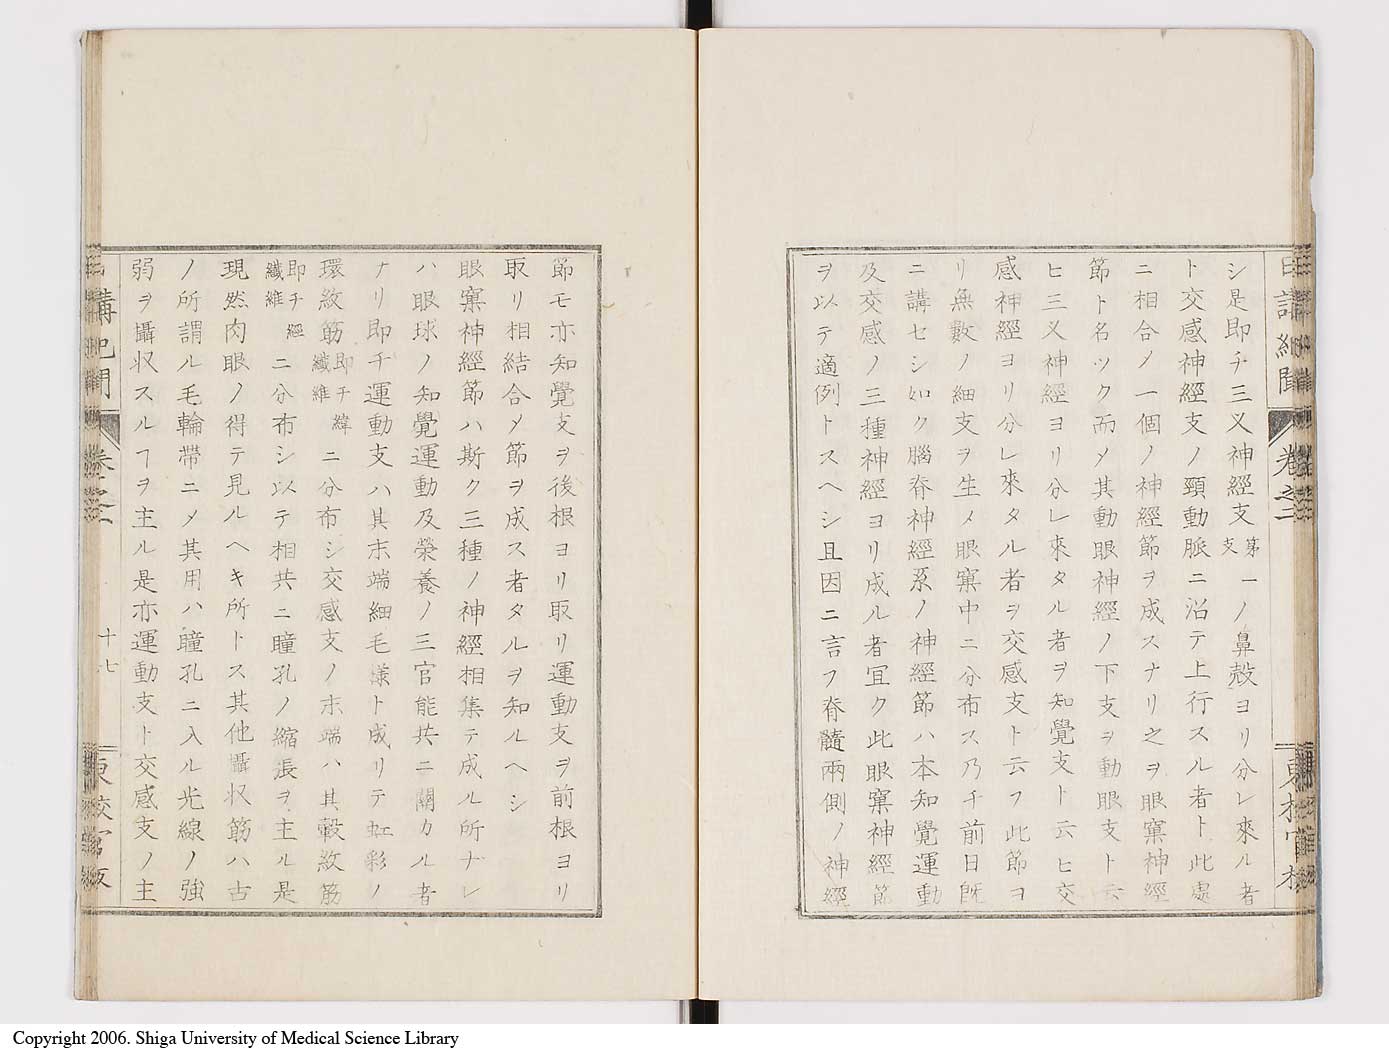 シ是即チ三叉神經支第一支ノ鼻殻ヨリ分レ來ル者
ト交感神經支ノ頸動脈ニ沿テ上行スル者ト此處
ニ相合メ一個ノ神經節ヲ成スナリ之ヲ眼窠神經
節ト名ツク而メ其動眼神經ノ下支ヲ動眼支ト云
ヒ三叉神經ヨリ分レ來タル者ヲ知覺支ト云ヒ交
感神經ヨリ分レ來タル者ヲ交感支ト云フ此節ヨ
リ無數ノ細支ヲ生メ眼窠中ニ分布ス乃チ前日既
ニ講セシ如ク腦脊神經系ノ神經節ハ本知覺運動
及交感ノ三種神經ヨリ成ル者冝ク此眼窠神經節
ヲ以テ適例トスヘシ且因ニ言フ脊髓兩側ノ神經
節モ亦知覺支ヲ後根ヨリ取リ運動支ヲ前根ヨリ
取リ相結合メ節ヲ成ス者タルヲ知ルヘシ
眼窠神經節ハ斯ク三種ノ神經相集テ成ル所ナレ
ハ眼球ノ知覺運動及榮養ノ三官能共ニ關カル者
ナリ即チ運動支ハ其末端細毛様ト成リテ虹彩ノ
環紋筋即チ緯纖維ニ分布シ交感支ノ末端ハ其轂紋筋
即チ經纖維ニ分布シ以テ相共ニ瞳孔ノ縮張ヲ主ル是
現然肉眼ノ得テ見ルヘキ所トス其他攝収筋ハ古
ノ所謂ル毛輪帶ニメ其用ハ瞳孔ニ入ル光線ノ強
弱ヲ攝収スルヿヲ主ル是亦運動支ト交感支ノ主
講記聞
卷之二
十七
東校官板
Copyright 2006. Shiga University of Medical Science Library